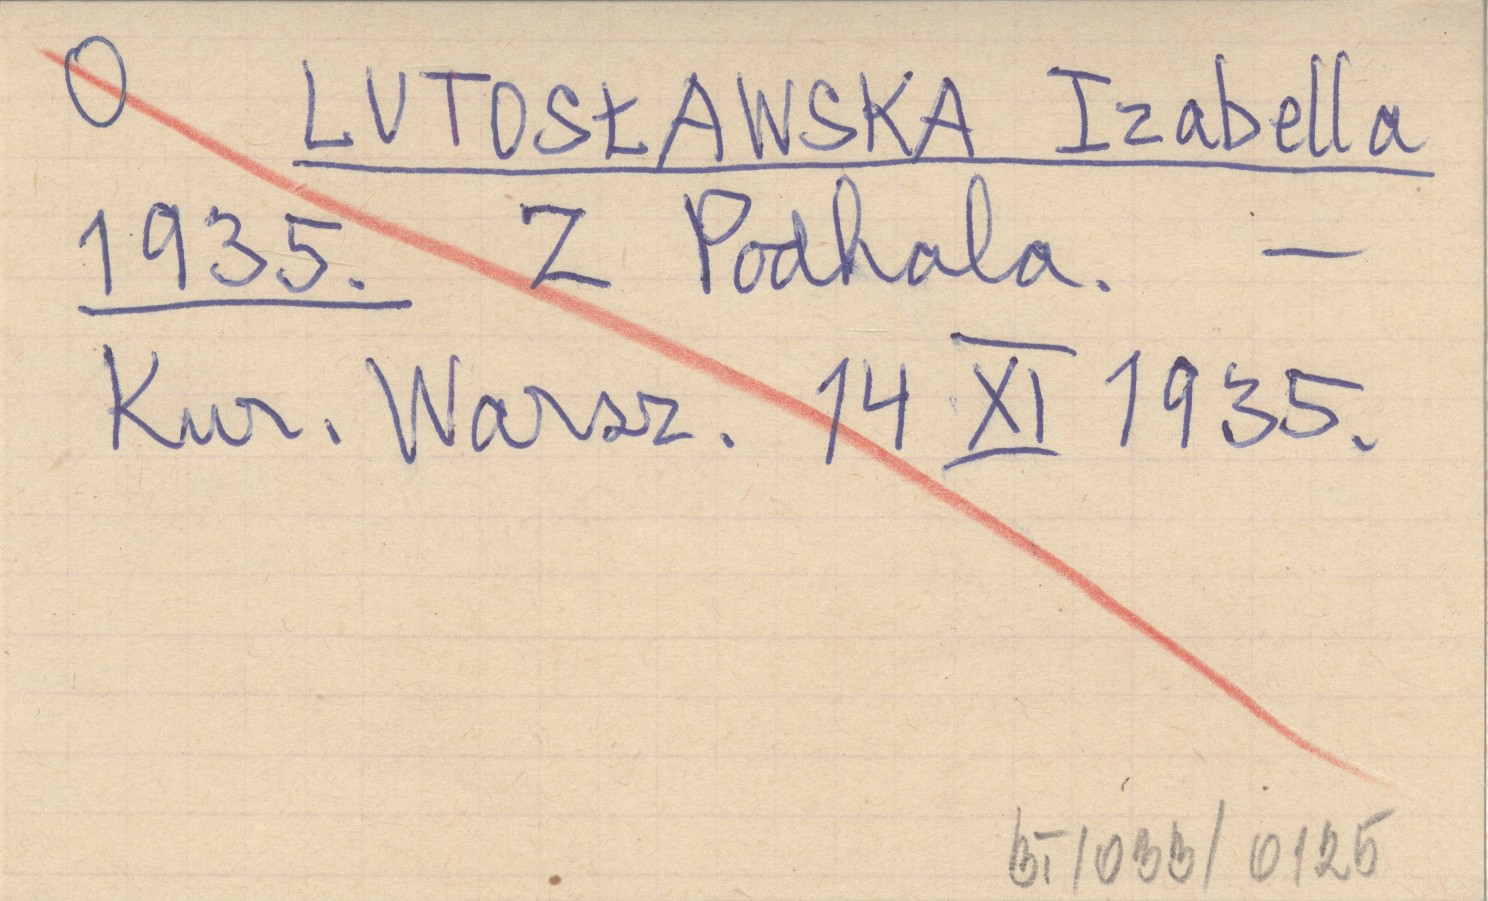 O LUTOSŁAWSKA Izabella
1935. Z Podhala. —
Kur. Warsz. 14 XI 1935.
BI/033/0125